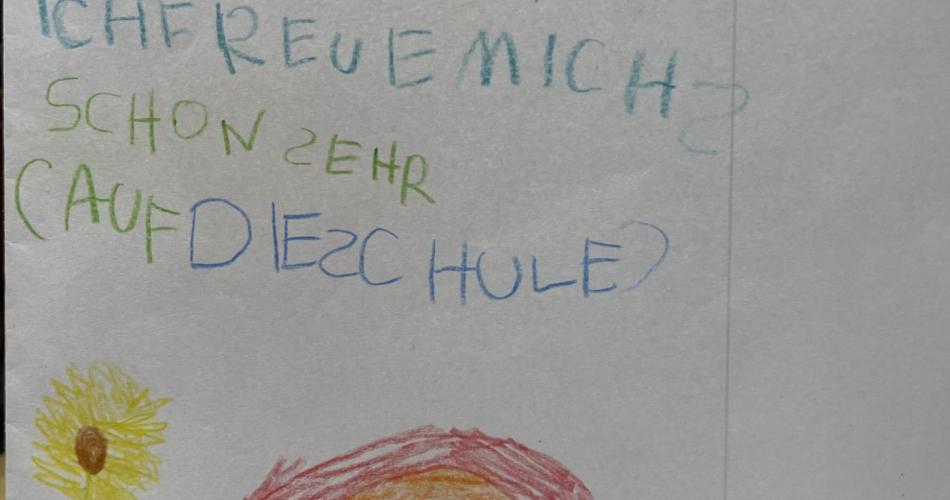 ICHFREUEMICH S
SCHON SEHR
(AUFDIESCHULE)